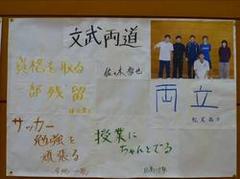 文武両道
資格を取る
佐々木
部残留
両立
サッカー
勉強を
頑張る
授業に
ちゃんとでる